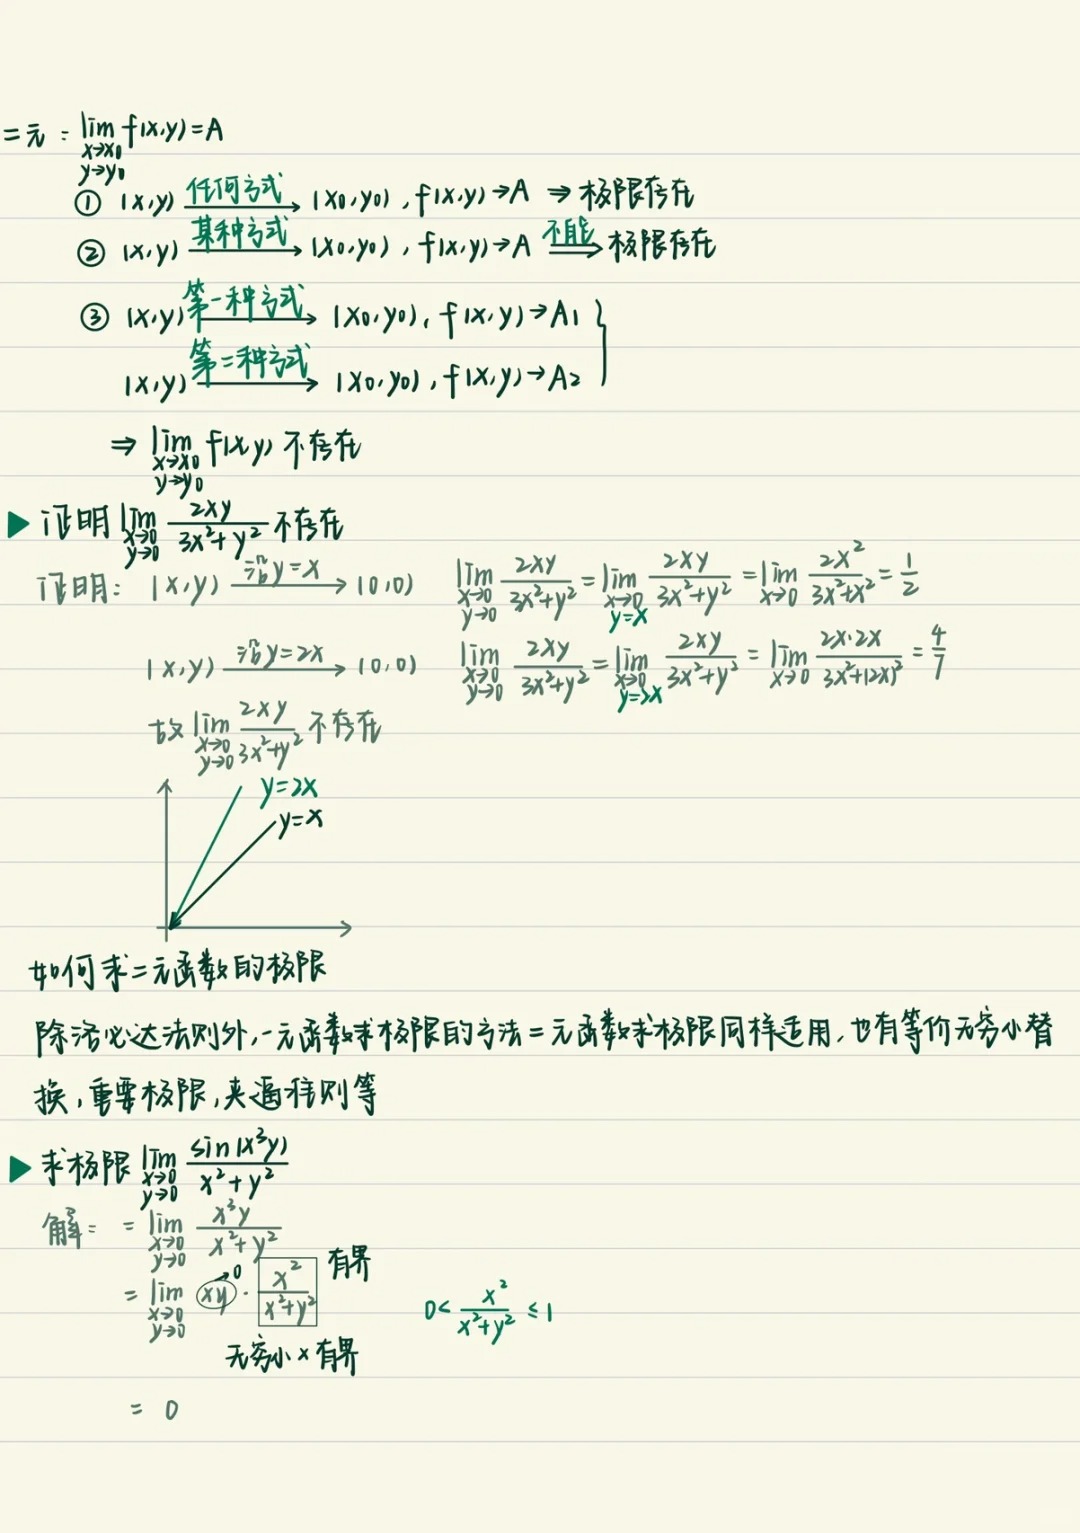 二元：lim f(x,y)=A
x→x₀
y→y₀
① (x,y) 任何方式→ (x₀,y₀)，f(x,y)→A ⇒ 极限存在
② (x,y) 某种方式→ (x₀,y₀)，f(x,y)→A 不能⇒ 极限存在
③ (x,y) 第一种方式→ (x₀,y₀)，f(x,y)→A₁ }
(x,y) 第二种方式→ (x₀,y₀)，f(x,y)→A₂
⇒ lim f(x,y) 不存在
x→x₀
y→y₀
▶ 证明 lim_{x→0 y→0} 2xy/(3x²+y²) 不存在
证明：(x,y) 沿y=x→ (0,0) lim_{x→0 y→0} 2xy/(3x²+y²) = lim_{x→0 y=x} 2xy/(3x²+y²) = lim_{x→0} 2x²/(3x²+x²) = 1/2
(x,y) 沿y=2x→ (0,0) lim_{x→0 y→0} 2xy/(3x²+y²) = lim_{x→0 y=2x} 2xy/(3x²+y²) = lim_{x→0} 2x·2x/(3x²+(2x)²) = 4/7
故 lim_{x→0 y→0} 2xy/(3x²+y²) 不存在
y=2x
y=x
如何求二元函数的极限
除洛必达法则外，一元函数求极限的方法二元函数求极限同样适用，也有等价无穷小替
换，重要极限，夹逼准则等
▶ 求极限 lim_{x→0 y→0} sin(x³y)/(x²+y²)
解： = lim_{x→0 y→0} x³y/(x²+y²)
= lim_{x→0 y→0} xy→0 · x²/(x²+y²) 有界 0< x²/(x²+y²) ≤1
无穷小×有界
= 0